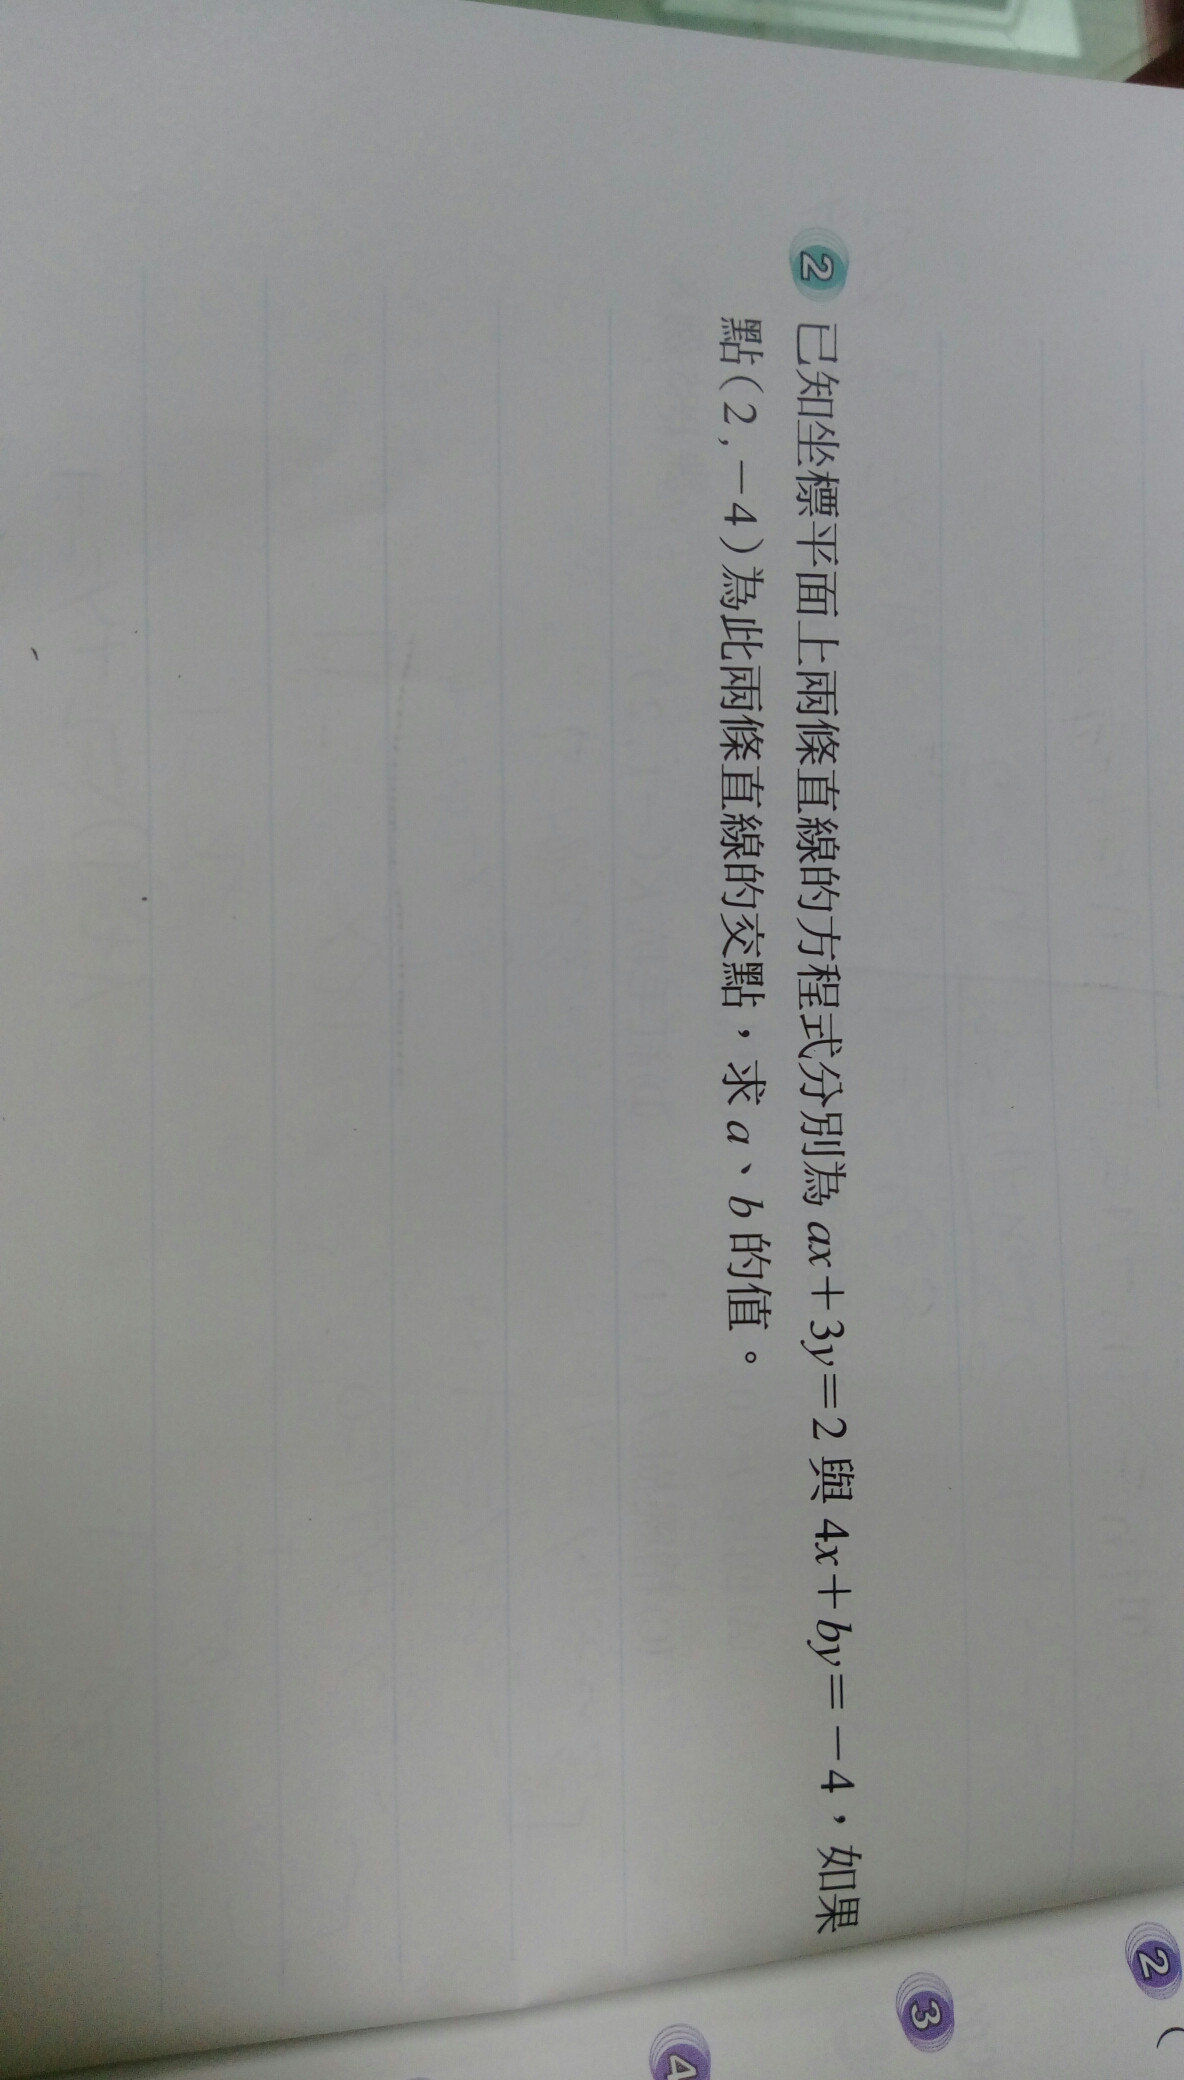 2 已知坐標平面上兩條直線的方程式分別為 ax＋3y＝2 與 4x＋by＝－4，如果
點(2,－4)為此兩條直線的交點，求 a、b 的值。
2 (
3
4